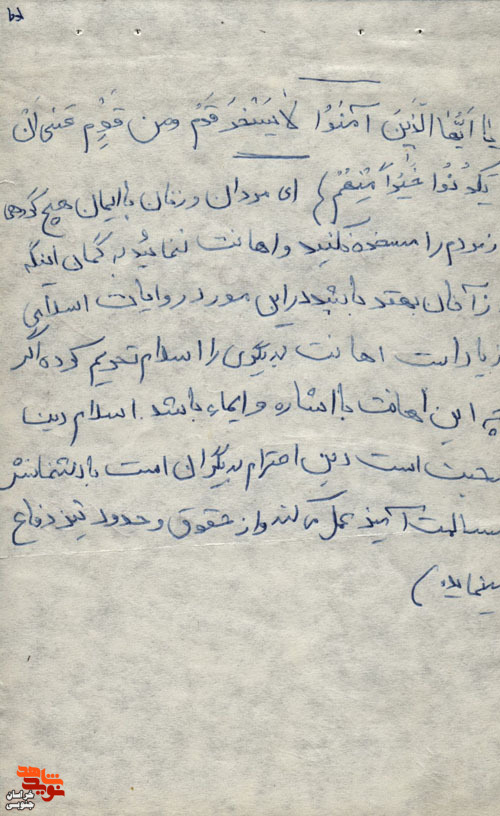 یا ایها الَّذِینَ آمَنُوا لا یَسْخَرَ قَوْمُ ومن قَوْمِ عَسَی اَنْ
یکونُوا خَیْراً مِنْهُمْ) ای مردان و زنان با ایمان هیچ گروهی
ز مردم را مسخره نکنید و اهانت ننمائید به گمان اینکه
ز آنان بهتر باشید در این مورد روایات اسلامی
زیاد است اهانت به دیگری را اسلام تحریم کرده اگر
چه این اهانت با اشاره و ایماء باشد. اسلام دین
محبت است دین احترام به دیگران است با دشمنانش
مسالمت آمیز عمل می کند و از حقوق و حدود نیز دفاع
مینماید)
نوید شاهد
خراسان
جنوبی